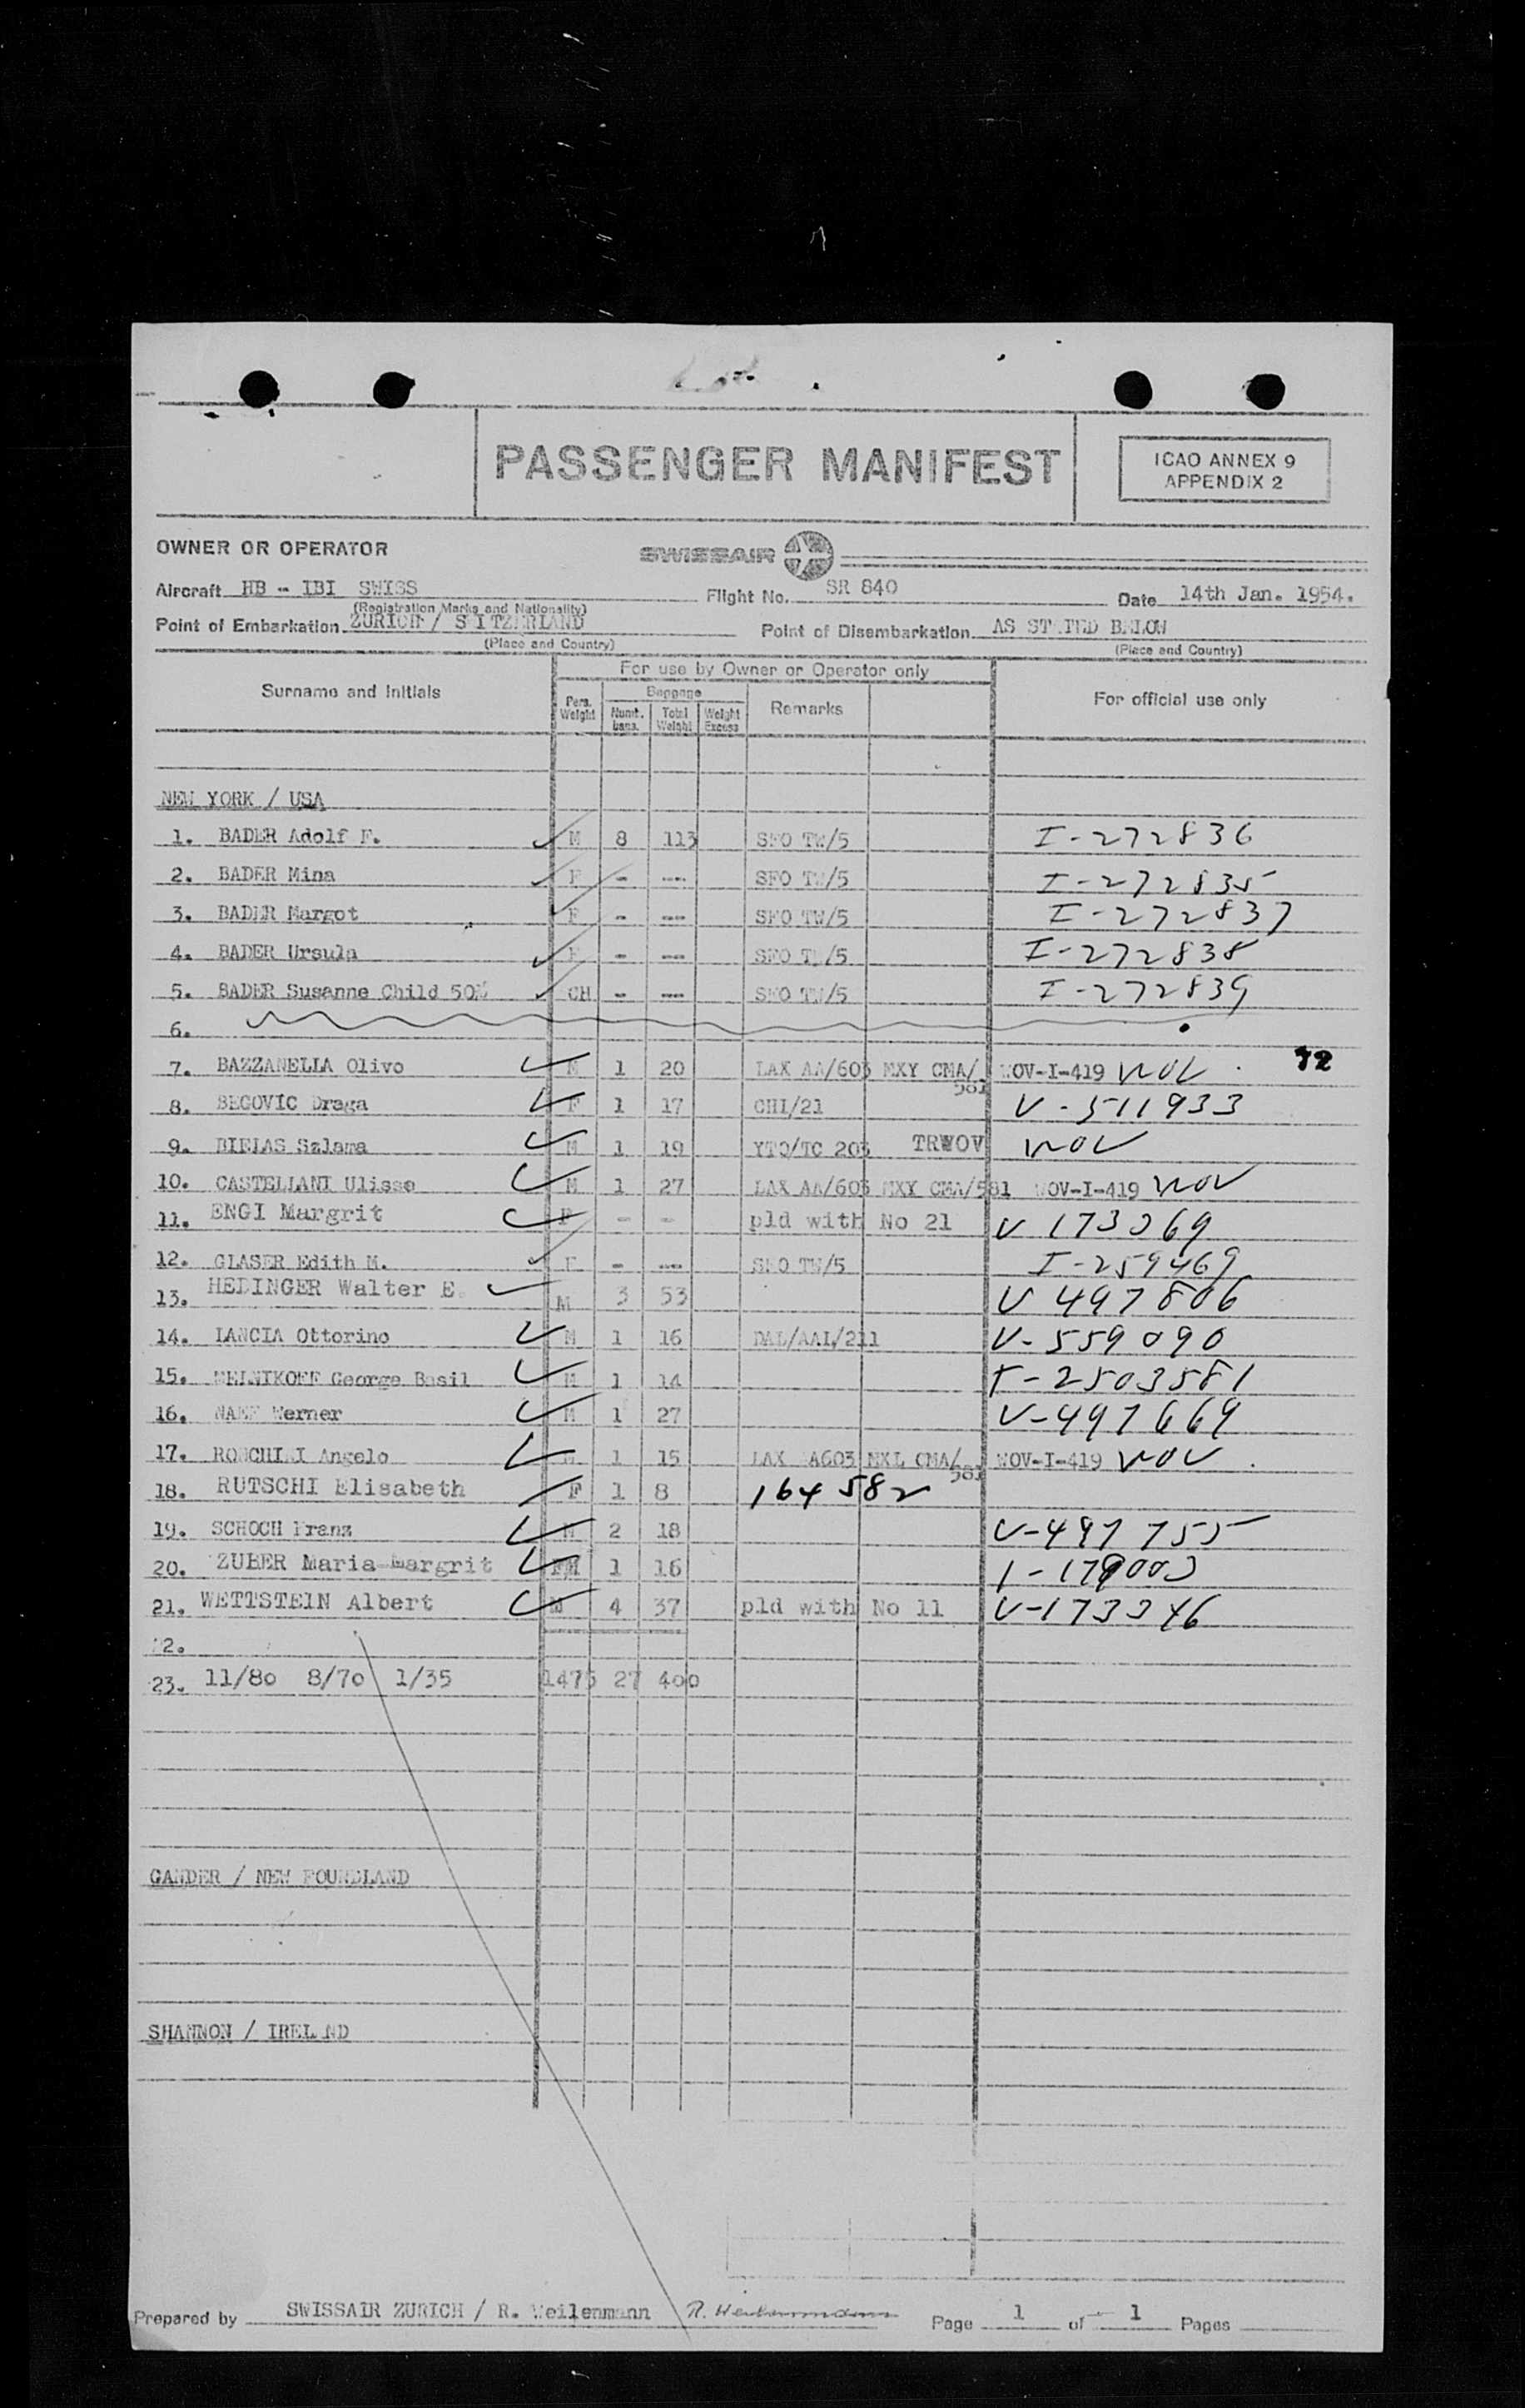 PASSENGER MANIFEST
ICAO ANNEX 9
APPENDIX 2
OWNER OR OPERATOR
SWISSAIR
Aircraft HB - IBI SWISS Flight No. SR 840 Date 14th Jan. 1954.
(Registration Marks and Nationality)
Point of Embarkation ZURICH / SWITZERLAND Point of Disembarkation AS STATED BELOW
(Place and Country) (Place and Country)
For use by Owner or Operator only
Surname and Initials Pers. Weight Baggage Numb. bags. Total Weight Weight Excess Remarks For official use only
NEW YORK / USA
1. BADER Adolf F. M 8 113 SFO TW/5 I-272836
2. BADER Mina F - --- SFO TW/5 I-272835
3. BADER Margot F - --- SFO TW/5 I-272837
4. BADER Ursula F - --- SFO TW/5 I-272838
5. BADER Susanne Child 50% CH - --- SFO TW/5 I-272839
6.
7. BAZZANELLA Olivo M 1 20 LAX AA/603 MXY CMA/581 WOV-I-419 WOV 12
8. BEGOVIC Draga F 1 17 CHI/21 V-511933
9. BIELAS Szlama M 1 19 YTO/TC 203 TRWOV WOV
10. CASTELLANI Ulisse M 1 27 LAX AA/603 MXY CMA/581 WOV-I-419 WOV
11. ENGI Margrit F - - pld with No 21 V 173369
12. GLASER Edith M. F - --- SFO TW/5 I-259469
13. HEDINGER Walter E. M 3 53 V 497806
14. LANCIA Ottorino M 1 16 DAL/AAL/211 V-559090
15. MELNIKOFF George Basil M 1 14 T-2503581
16. NAEF Werner M 1 27 V-497669
17. RONCHINI Angelo M 1 15 LAX AA603 MXL CMA/581 WOV-I-419 WOV
18. RUTSCHI Elisabeth F 1 8 164582
19. SCHOCH Franz M 2 18 V-497755
20. ZUBER Maria-Margrit FM 1 16 1-179003
21. WETTSTEIN Albert M 4 37 pld with No 11 V-173346
22.
23. 11/80 8/70 1/35 1475 27 400
GANDER / NEW FOUNDLAND
SHANNON / IRELAND
Prepared by SWISSAIR ZURICH / R. Weilenmann R. Weilenmann Page 1 of 1 Pages